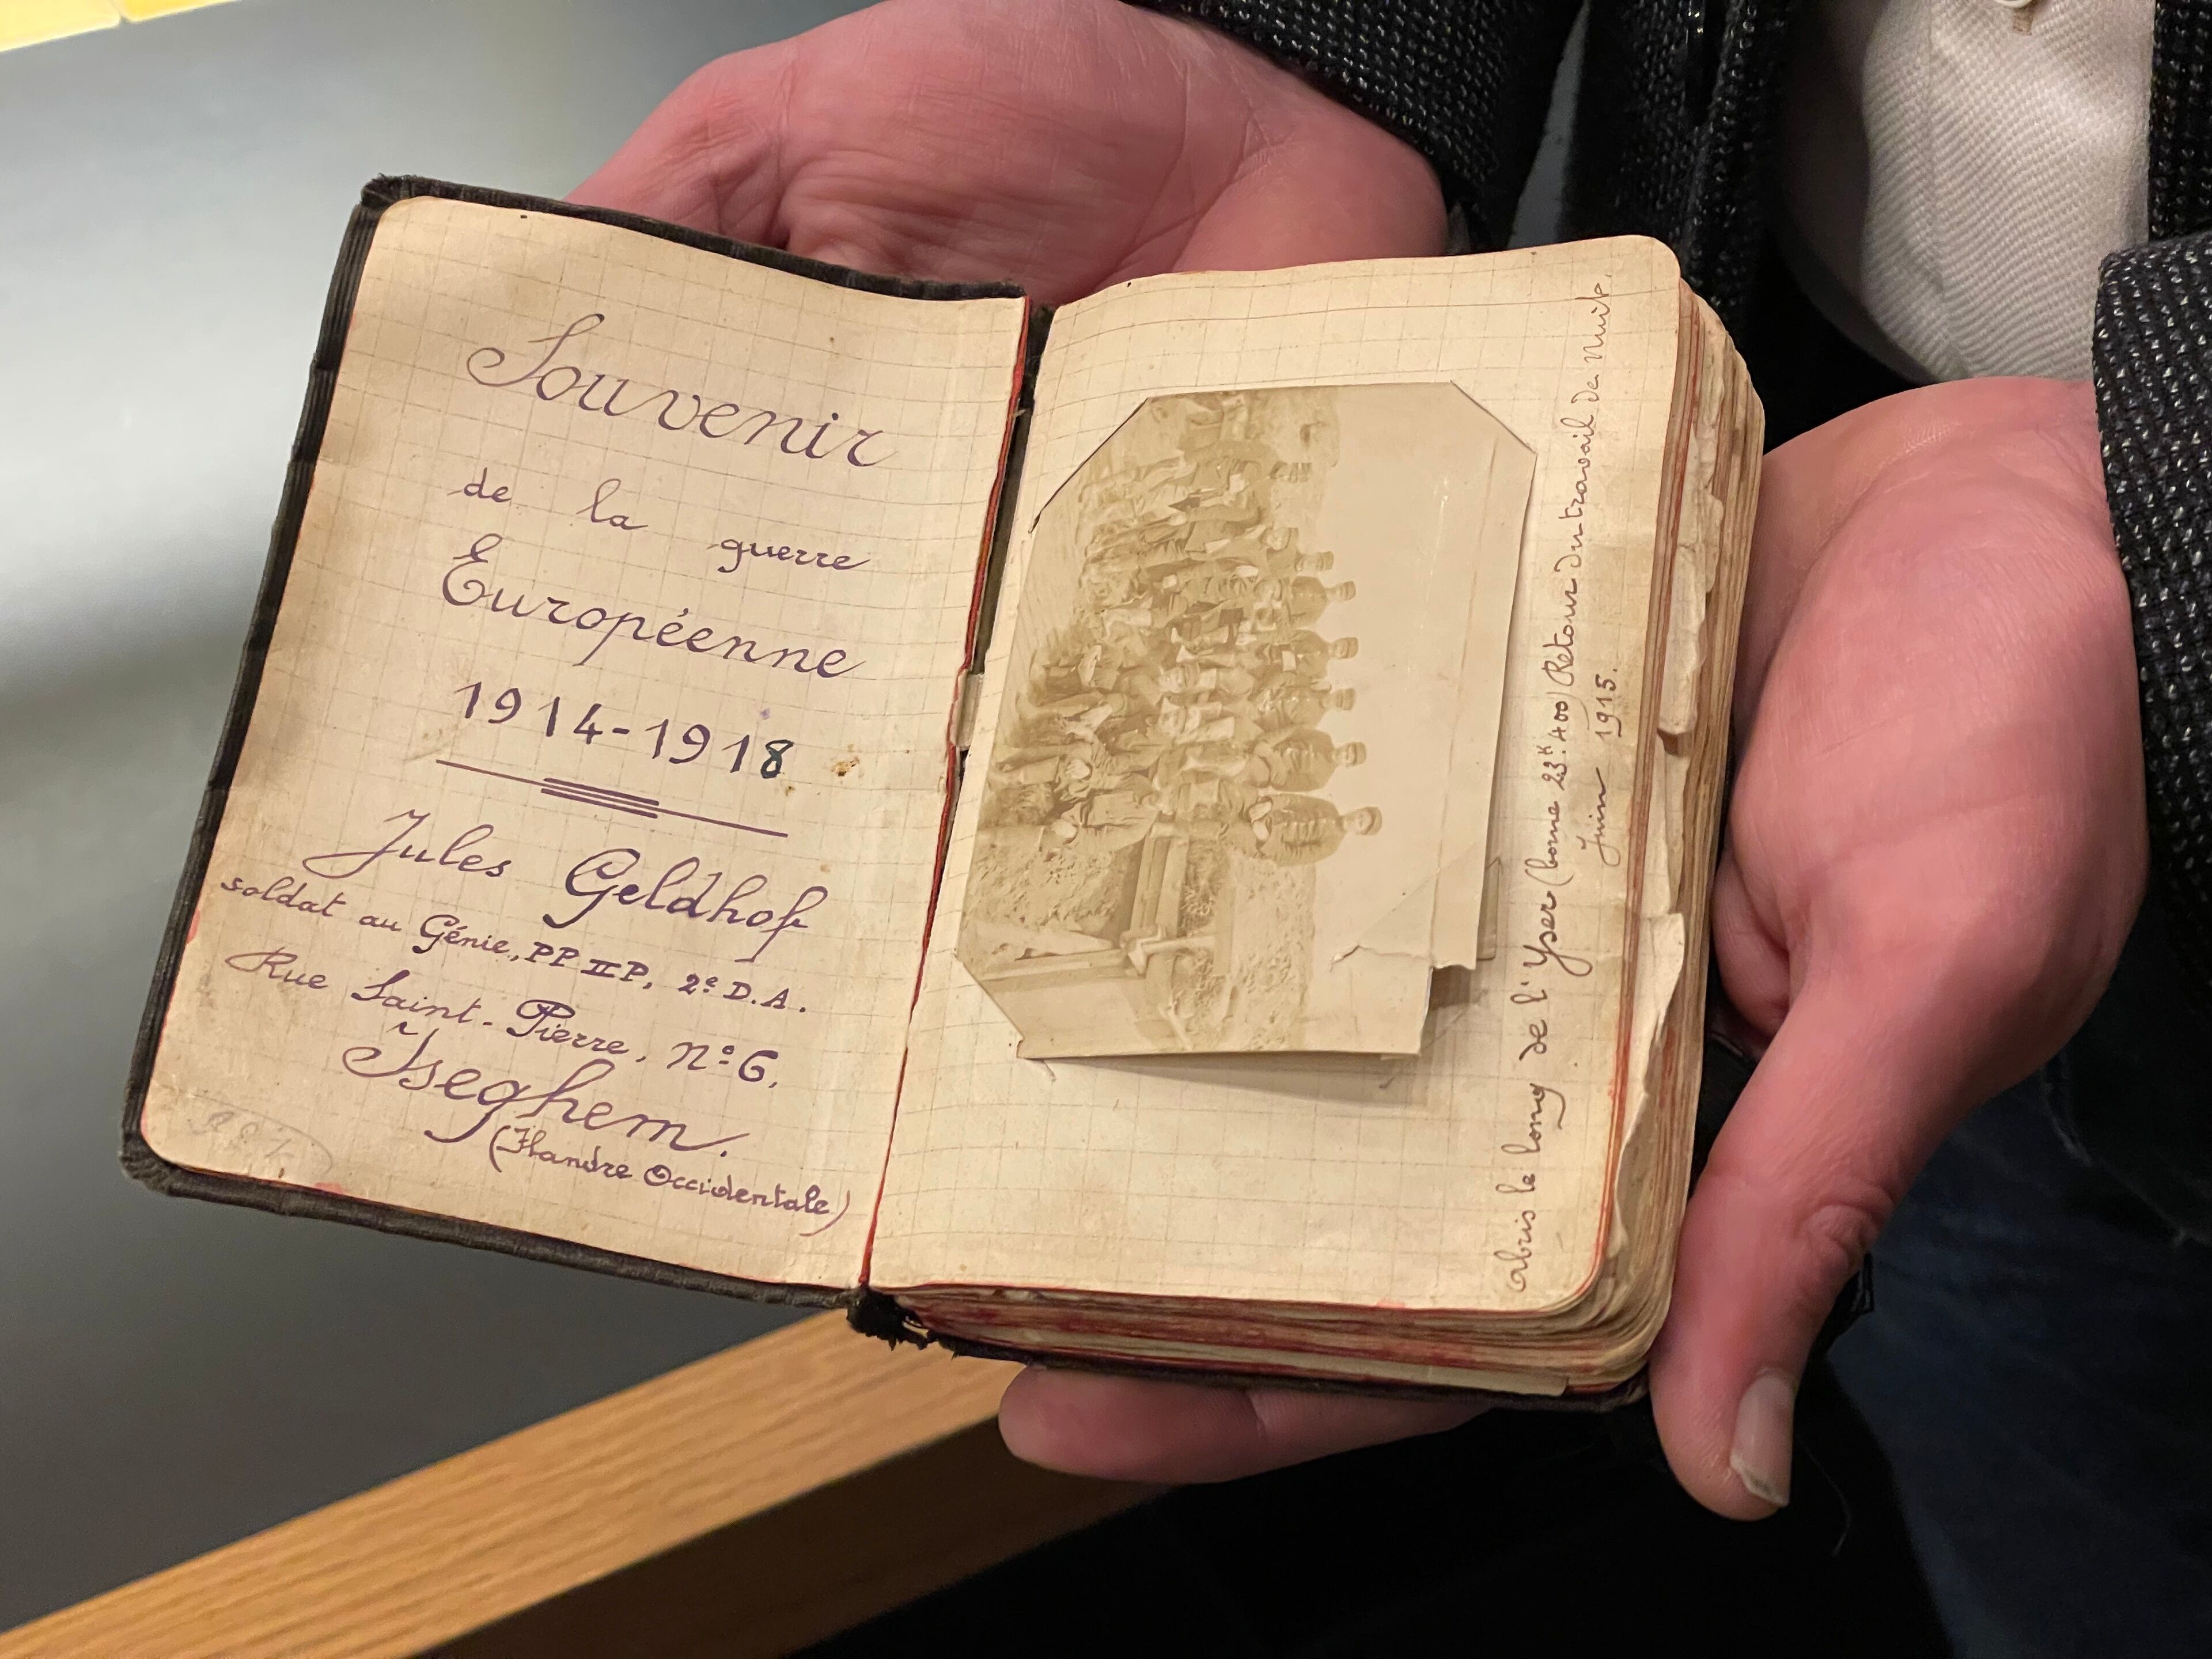 Souvenir
de la guerre
Européenne
1914-1918
Jules Geldhof
soldat au Génie, PP IIP, 2e D.A.
Rue Saint-Pierre, No 6.
Iseghem.
(Flandre Occidentale)
Abris le long de l'Yser (borne 23K.400) Retour du travail de nuit.
Juin 1915.